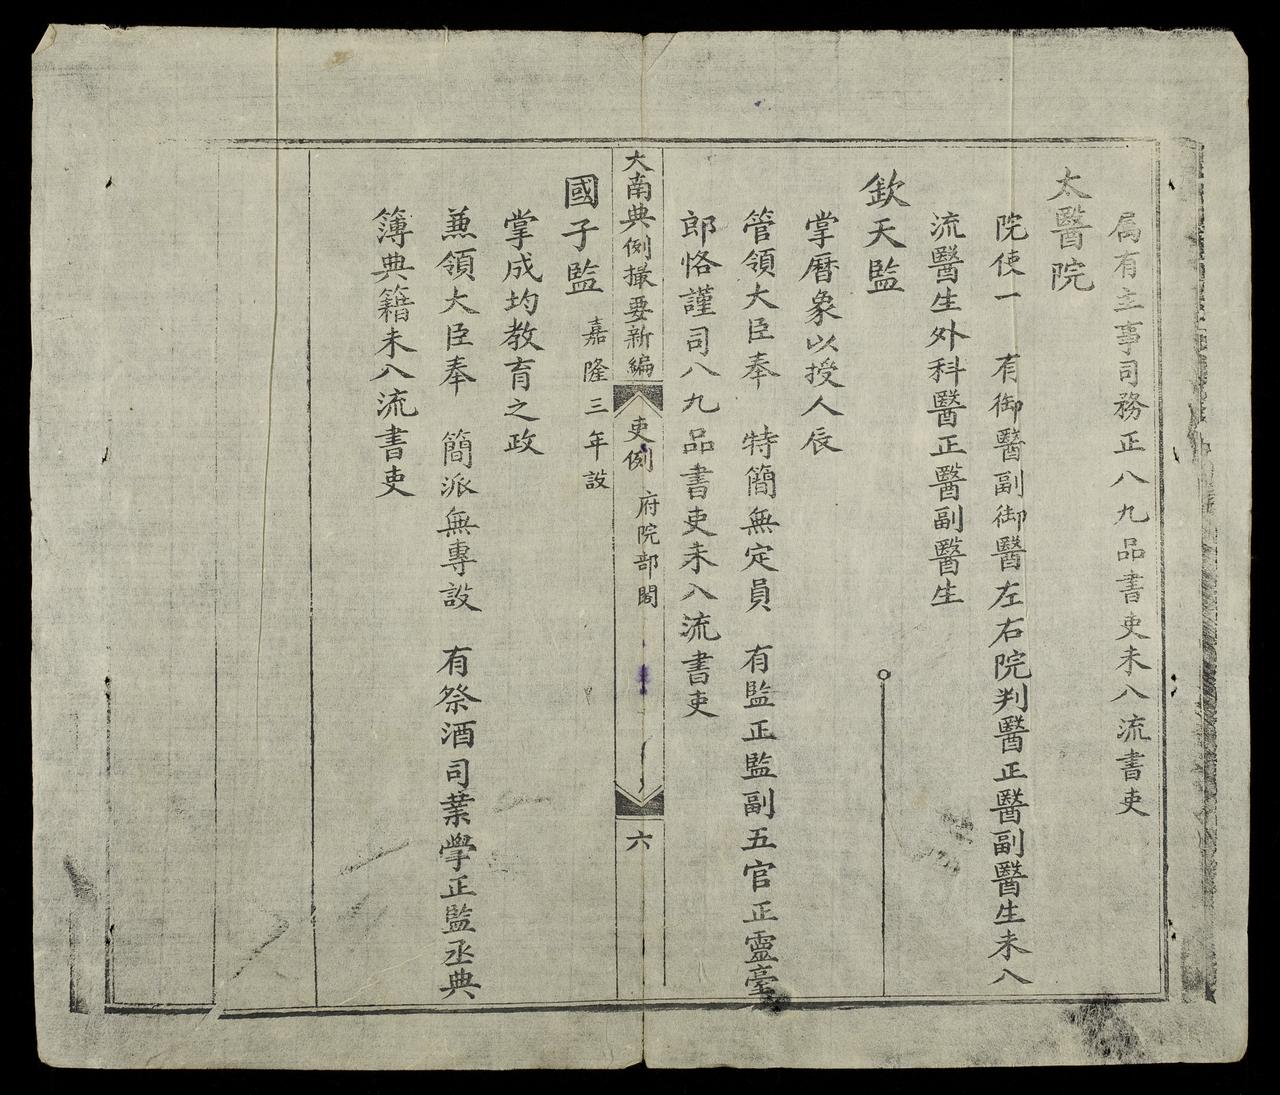 属有主事司務正八九品書吏未入流書吏
太醫院
院使一 有御醫副御醫左右院判醫正醫副醫生未入
流醫生外科醫正醫副醫生
欽天監
掌曆象以授人辰
管領大臣奉 特簡無定員 有監正監副五官正靈臺
郎恪謹司八九品書吏未入流書吏
大南典例撮要新編 吏例 府院部閣 六
國子監 嘉隆三年設
掌成均教育之政
兼領大臣奉 簡派無專設 有祭酒司業學正監丞典
簿典籍未入流書吏